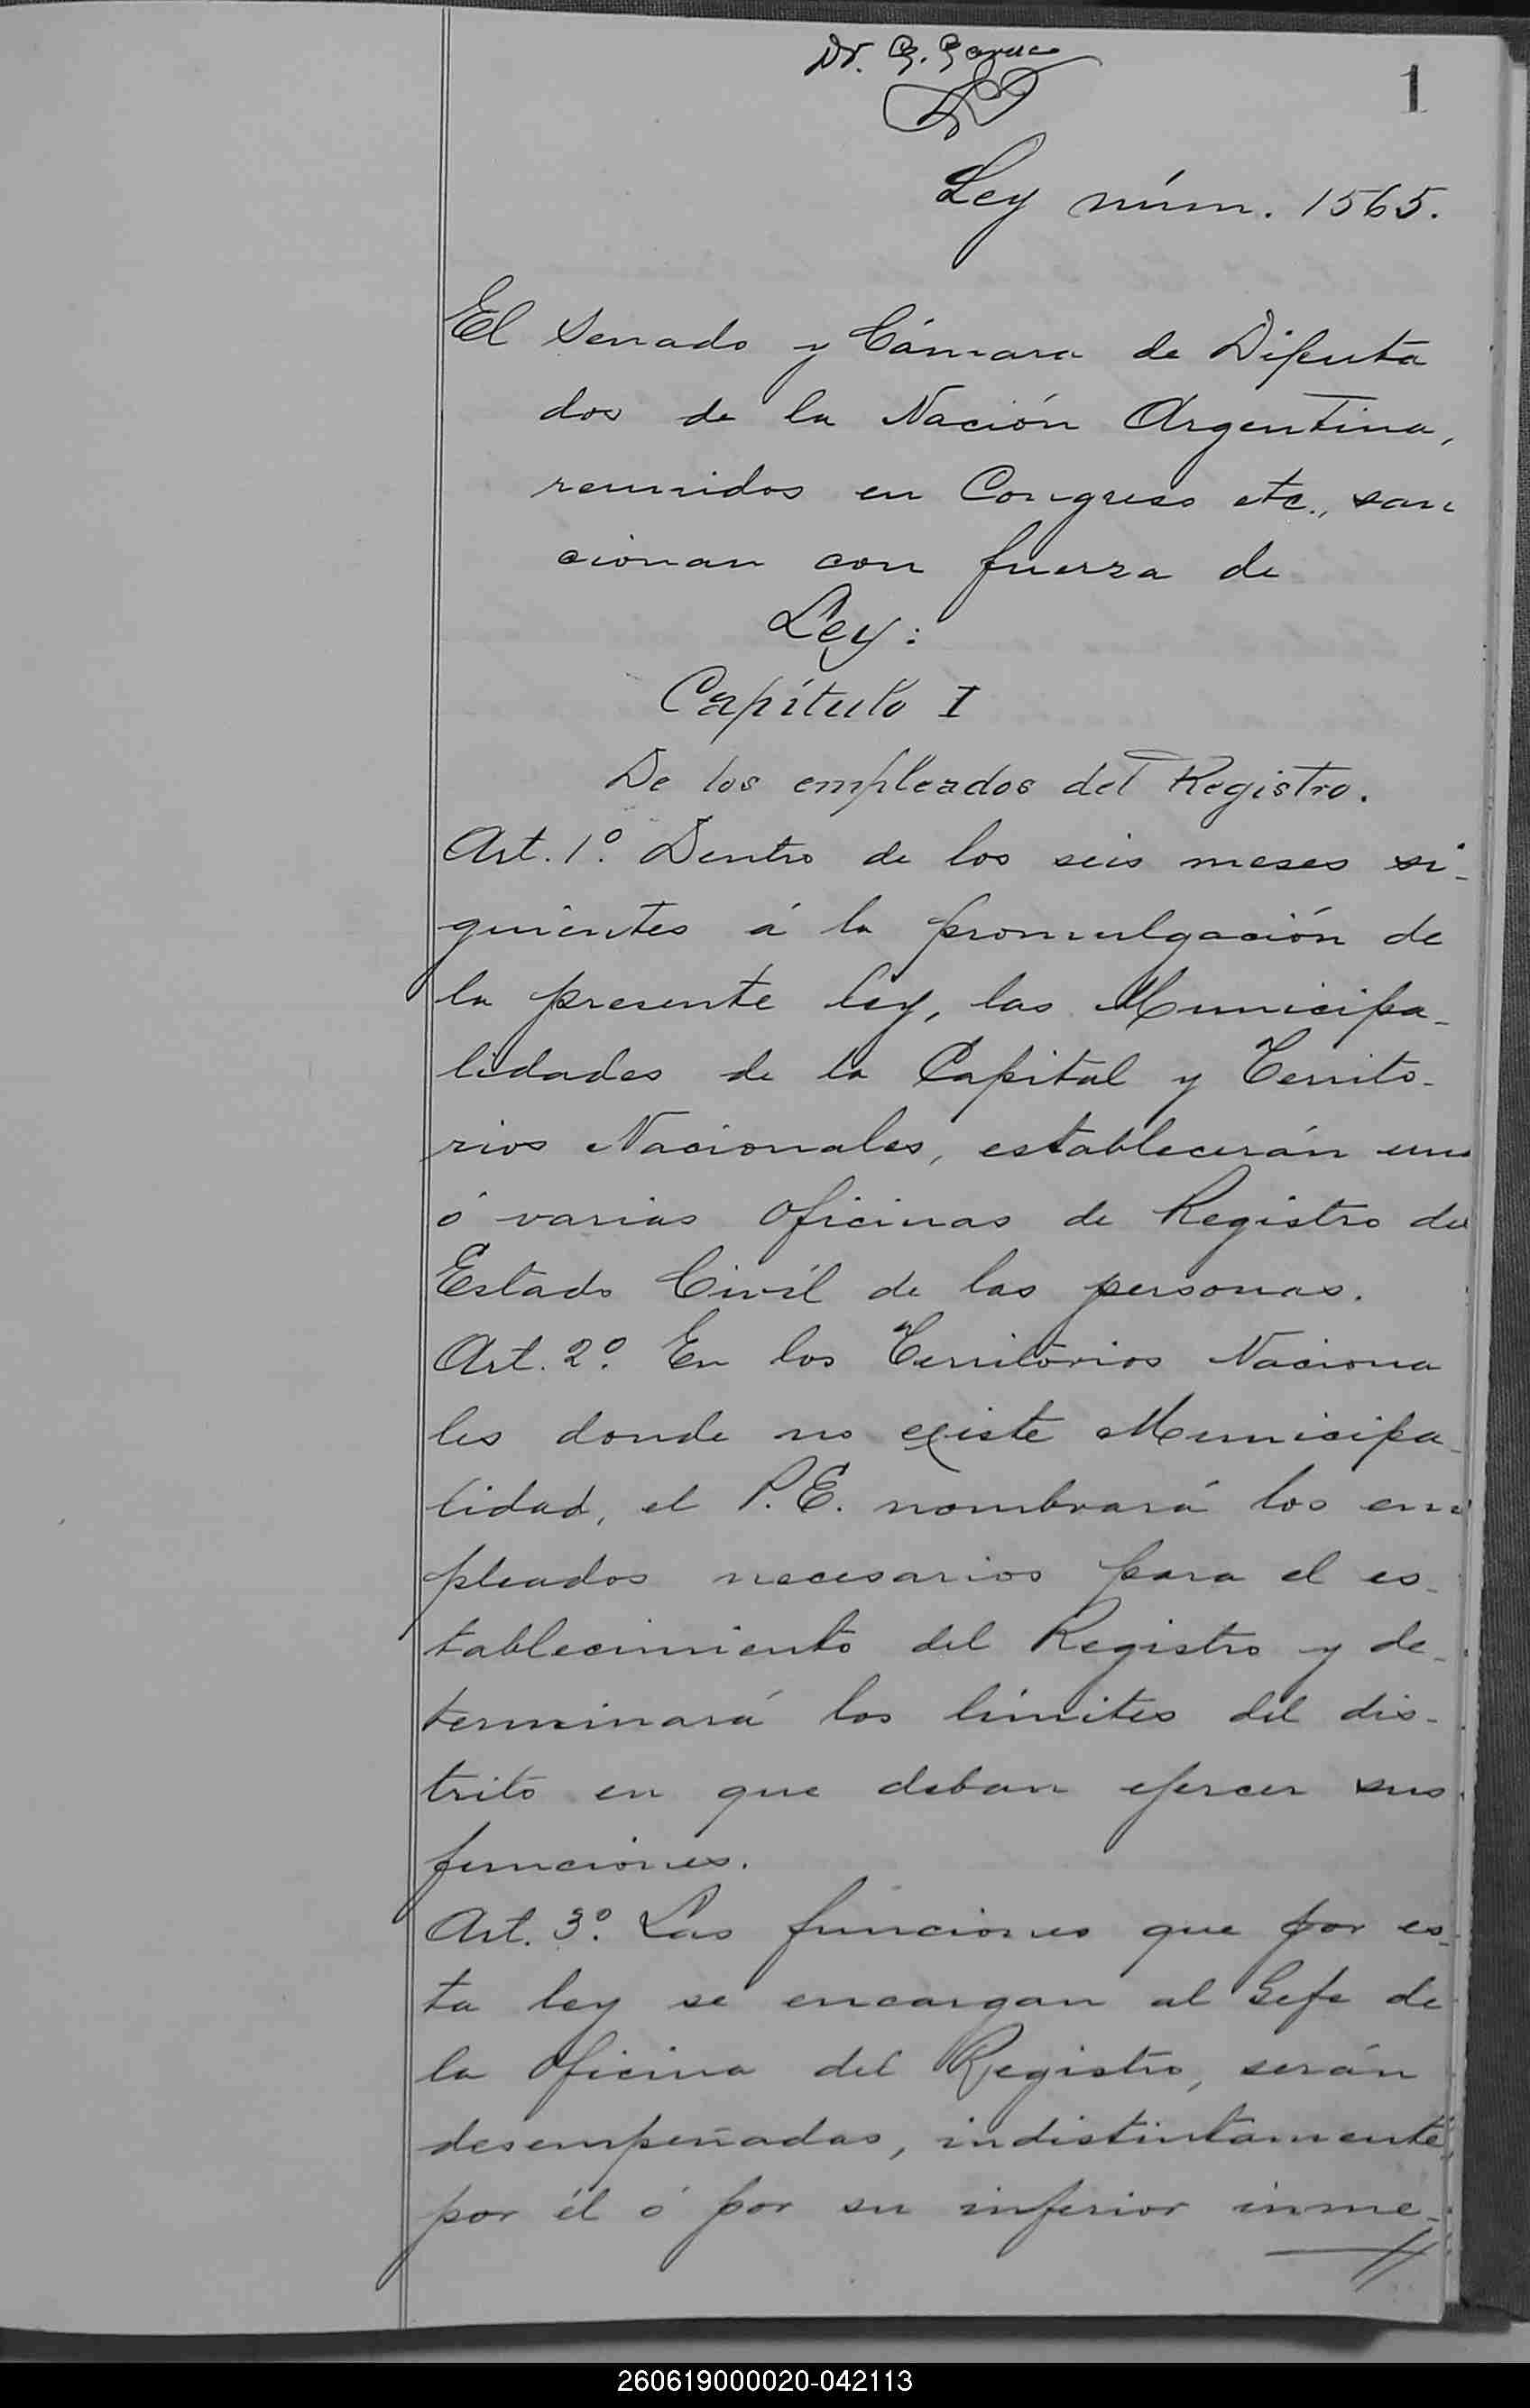 Dr. G.
1
Ley núm. 1565.
El Senado y Cámara de Diputa
dos de la Nación Argentina,
reunidos en Congreso etc., san
cionan con fuerza de
Ley:
Capítulo I
De los empleados del Registro.
Art. 1º. Dentro de los seis meses si-
guientes á la promulgación de
la presente ley, las Municipa-
lidades de la Capital y Territo-
rios Nacionales, establecerán una
ó varias oficinas de Registro del
Estado Civil de las personas.
Art. 2º. En los Territorios Naciona
les donde no existe Municipa-
lidad, el P.E. nombrará los em
pleados necesarios para el es-
tablecimiento del Registro y de-
terminará los límites del dis-
trito en que deban ejercer sus
funciones.
Art. 3º. Las funciones que por es-
ta ley se encargan al Gefe de
la oficina del Registro, serán
desempeñadas, indistintamente,
por él ó por su inferior inme-
260619000020-042113